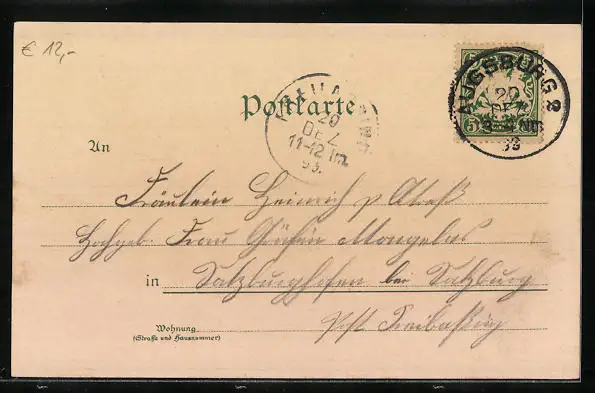 € 12,-
AUGSBURG 2
20
DEZ
Postkarte
20
DEZ
11-12 Vm.
93.
5
5
An
Fräulein Heinrich p
Hochgeb. Frau Gräfin
in Salzburghofen bei Salzburg
Post Freilassing
Wohnung
(Straße und Hausnummer)